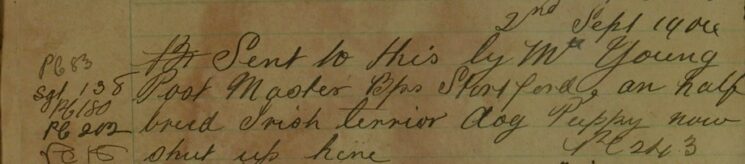 2nd Sept 1900
PC 83
Sent to this by Mr Young
Sgt 138
Post Master Bps Stortford, an half
PC 180
PC 202
bred Irish terrior dog Puppy now
shut up here
PC 243